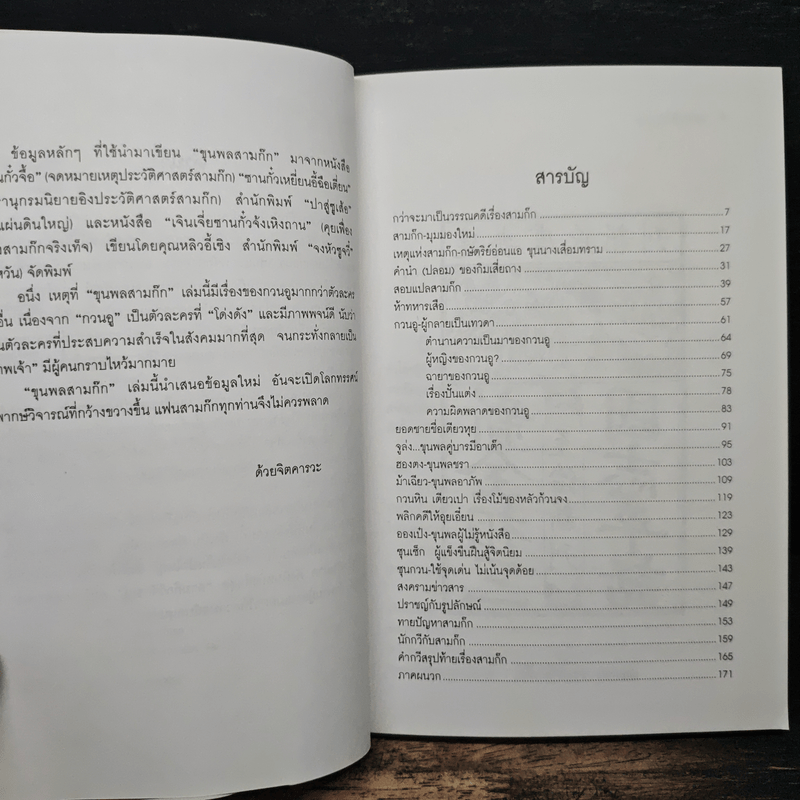 ข้อมูลหลักๆ ที่ใช้นำมาเขียน “ขุนพลสามก๊ก” มาจากหนังสือ
นกั๋วจื้อ” (จดหมายเหตุประวัติศาสตร์สามก๊ก) “ซานกั๋วเหยี่ยนอี้ฉือเตี่ยน”
านุกรมนิยายอิงประวัติศาสตร์สามก๊ก) สำนักพิมพ์ “ปาสู่ซูเส้อ”
แผ่นดินใหญ่) และหนังสือ “เจินเจี่ยซานกั๋วจ้งเหิงถาน” (คุยเฟื่อง
งสามก๊กจริงเท็จ) เขียนโดยคุณหลิวอี้เซิง สำนักพิมพ์ “จงหัวซูจวี๋”
หวัน) จัดพิมพ์
อนึ่ง เหตุที่ “ขุนพลสามก๊ก” เล่มนี้มีเรื่องของกวนอูมากกว่าตัวละคร
อื่น เนื่องจาก “กวนอู” เป็นตัวละครที่ “โด่งดัง” และมีภาพพจน์ดี นับว่า
นตัวละครที่ประสบความสำเร็จในสังคมมากที่สุด จนกระทั่งกลายเป็น
ทพเจ้า” มีผู้คนกราบไหว้มากมาย
“ขุนพลสามก๊ก” เล่มนี้นำเสนอข้อมูลใหม่ อันจะเปิดโลกทรรศน์
พากษ์วิจารณ์ที่กว้างขวางขึ้น แฟนสามก๊กทุกท่านจึงไม่ควรพลาด
ด้วยจิตคารวะ
สารบัญ
กว่าจะมาเป็นวรรณคดีเรื่องสามก๊ก 7
สามก๊ก-มุมมองใหม่ 17
เหตุแห่งสามก๊ก-กษัตริย์อ่อนแอ ขุนนางเสื่อมทราม 27
คำนำ (ปลอม) ของกิมเสี่ยถาง 31
สอบแปลสามก๊ก 39
ห้าทหารเสือ 57
กวนอู-ผู้กลายเป็นเทวดา 61
ตำนานความเป็นมาของกวนอู 64
ผู้หญิงของกวนอู? 69
ฉายาของกวนอู 75
เรื่องปั้นแต่ง 78
ความผิดพลาดของกวนอู 83
ยอดชายชื่อเตียวหุย 91
จูล่ง...ขุนพลคู่บารมีอาเต๊า 95
ฮองตง-ขุนพลชรา 103
ม้าเฉียว-ขุนพลอาภัพ 109
กวนหิน เตียวเปา เรื่องโม้ของหลัวก้วนจง 119
พลิกคดีให้อุยเอี๋ยน 123
อองเป๋ง-ขุนพลผู้ไม่รู้หนังสือ 129
ซุนเซ็ก ผู้แข็งขืนฝืนสู้จิตนิยม 139
ซุนกวน-ใช้จุดเด่น ไม่เน้นจุดด้อย 143
สงครามข่าวสาร 147
ปราชญ์กับรูปลักษณ์ 149
ทายปัญหาสามก๊ก 153
นักกวีกับสามก๊ก 159
คำกวีสรุปท้ายเรื่องสามก๊ก 165
ภาคผนวก 171